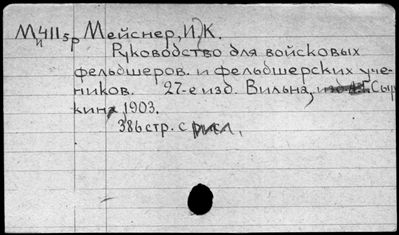 Ми411 5р Мейснер, И. К.
Руководство для войсковых
фельдшеров. и фельдшерских уче-
ников. 27-е изд. Вильна, Сыр
кин, 1903.
386 стр. с рис.